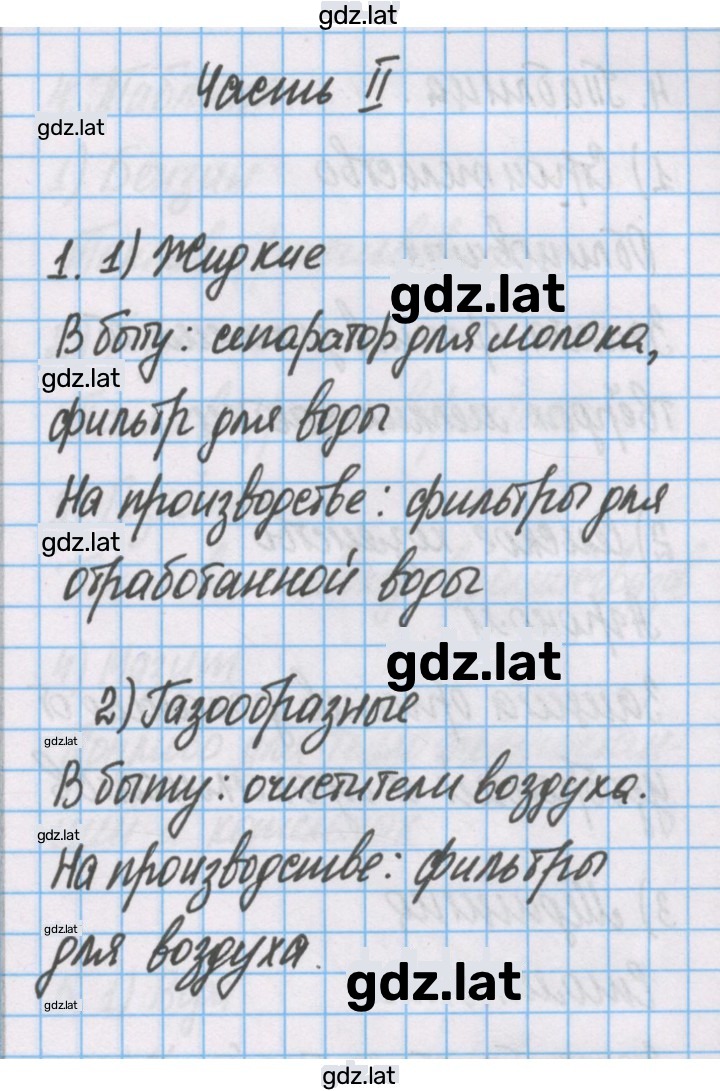 gdz.lat
Часть II
gdz.lat
1. 1) Жидкие
gdz.lat
В быту: сепаратор для молока,
gdz.lat
фильтр для воды
На производстве: фильтры для
gdz.lat
отработанной воды
gdz.lat
2) Газообразные
gdz.lat
В быту: очистители воздуха.
gdz.lat
На производстве: фильтры
gdz.lat
для воздуха.
gdz.lat
gdz.lat
gdz.lat